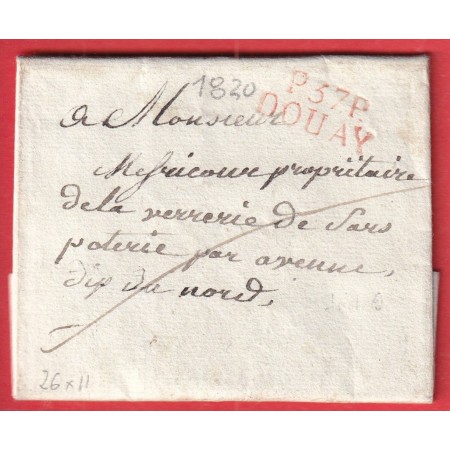 1820
P 57 P
DOUAY
a Monsieur
propritaire
de la verrerie de Sars
poterie par avenne,
dep du nord,
26 x 11